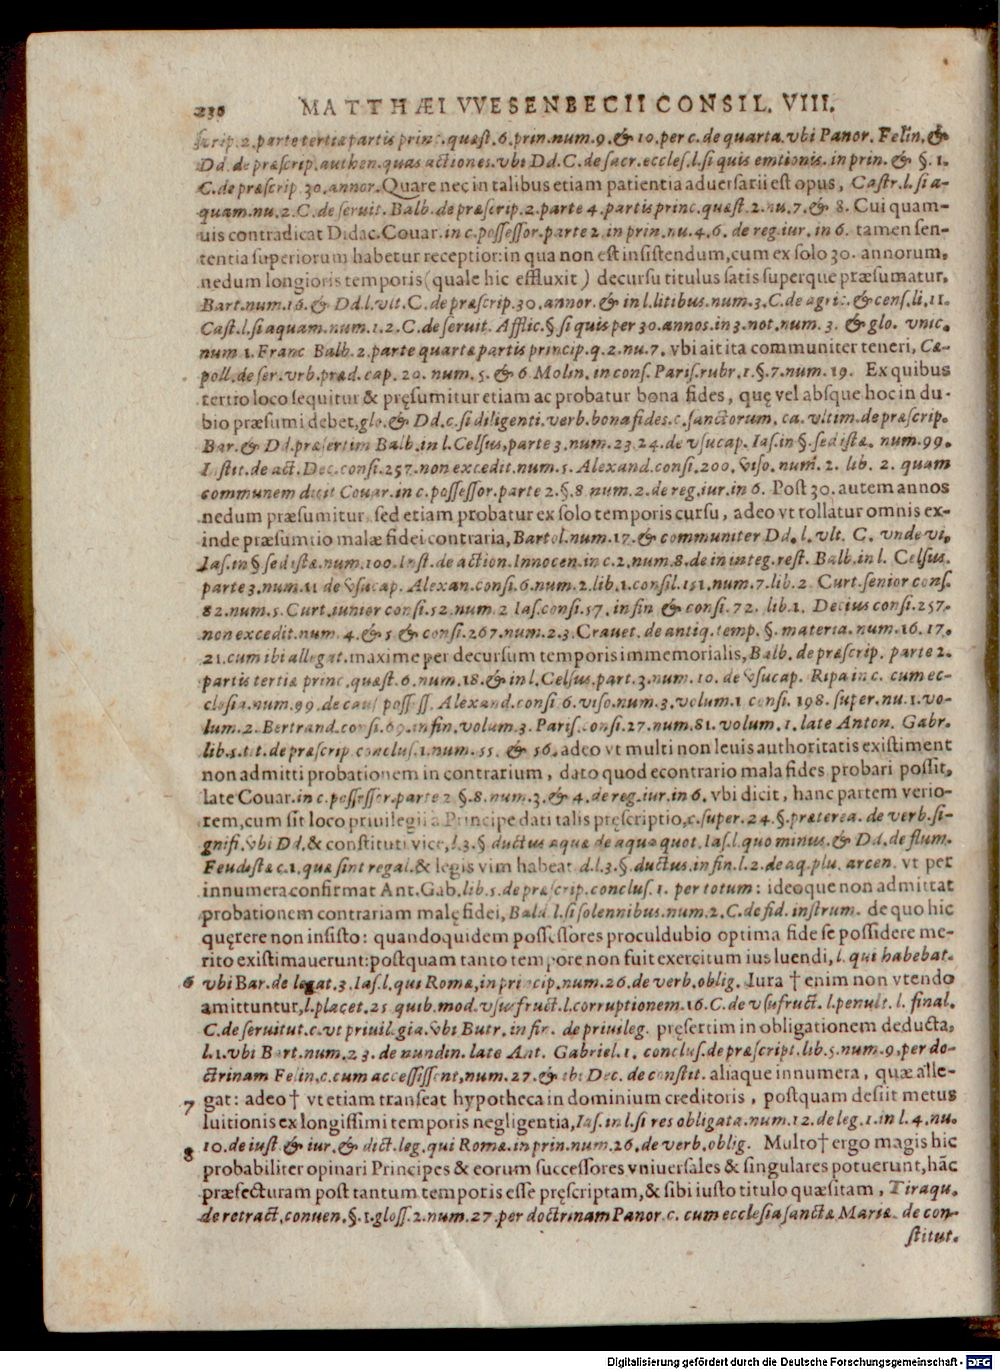 236 MATTHÆI VVESENBECII CONSIL. VIII.
scrip. 2. parte tertiæ partis princ. quæst. 6. prin. num. 9. & 10. per c. de quarta. vbi Panor. Felin. &
Dd. de præscrip. authen. quas actiones. vbi Dd. C. de sacr. eccles. l. si quis emtionis. in prin. & §. 1.
C. de præscrip. 30. annor. Quare nec in talibus etiam patientia aduersarii est opus, Castr. l. si a-
quam. nu. 2. C. de seruit. Balb. de præscrip. 2. parte 4. partis princ. quæst. 2. nu. 7. & 8. Cui quam-
uis contradicat Didac. Couar. in c. possessor. parte 2. in prin. nu. 4. 6. de reg. iur. in 6. tamen sen-
tentia superiorum habetur receptior: in qua non est insistendum, cum ex solo 30. annorum,
nedum longioris temporis (quale hic effluxit) decursu titulus satis superque præsumatur,
Bart. num. 16. & Dd. l. vlt. C. de præscrip. 30. annor. & in l. litibus. num. 3. C. de agric. & cens. li. 11.
Cast. l. si aquam. num. 1. 2. C. de seruit. Afflic. §. si quis per 30. annos. in 3. not. num. 3. & glo. vnic.
num. 1. Franc Balb. 2. parte quartæ partis princip. q. 2. nu. 7. vbi ait ita communiter teneri, Cæ-
poll. de ser. vrb. præd. cap. 20. num. 5. & 6 Molin. in cons. Paris. rubr. 1. §. 7. num. 19. Ex quibus
tertio loco sequitur & pręsumitur etiam ac probatur bona fides, quę vel absque hoc in du-
bio præsumi debet, glo. & Dd. c. si diligenti. verb. bona fides. c. sanctorum. ca. vltim. de præscrip.
Bar. & Dd. præsertim Balb. in l. Celsus, parte 3. num. 23. 24. de vsucap. Ias. in §. sed istæ. num. 99.
Instit. de act. Dec. consi. 257. non excedit. num. 5. Alexand. consi. 200. viso. num. 2. lib. 2. quam
communem dicit Couar. in c. possessor. parte 2. §. 8. num. 2. de reg. iur. in 6. Post 30. autem annos
nedum præsumitur, sed etiam probatur ex solo temporis cursu, adeo vt tollatur omnis ex-
inde præsumtio malæ fidei contraria, Bartol. num. 17. & communiter Dd. l. vlt. C. vnde vi,
Ias. in § sed istæ. num. 100. Inst. de action. Innocen. in c. 2. num. 8. de in integ. rest. Balb. in l. Celsus.
parte 3. num. 11 de vsucap. Alexan. consi. 6. num. 2. lib. 1. consil. 151. num. 7. lib. 2. Curt. senior cons.
82. num. 5. Curt. iunior consi. 52. num. 2 Ias. consi. 57. in fin & consi. 72. lib. 1. Decius consi. 257.
non excedit. num. 4. & 5 & consi. 267. num. 2. 3. Crauet. de antiq. temp. §. materia. num. 16. 17.
21. cum ibi allegat. maxime per decursum temporis immemorialis, Balb. de præscrip. parte 2.
partis tertiæ princ. quæst. 6. num. 18. & in l. Celsus, part. 3. num. 10. de vsucap. Ripa in c. cum ec-
clesia. num. 99. de caus possess. Alexand. consi 6. viso. num. 3. volum. 1 consi. 198. super. nu. 1. vo-
lum. 2. Bertrand. consi. 69. in fin. volum. 3. Paris. consi. 27. num. 81. volum. 1. late Anton. Gabr.
lib. 5. tit. de præscrip. conclus. 1. num. 55. & 56. adeo vt multi non leuis authoritatis existiment
non admitti probationem in contrarium, dato quod econtrario mala fides probari possit,
late Couar. in c. possessor. parte 2 §. 8. num. 3. & 4. de reg. iur. in 6. vbi dicit, hanc partem verio-
rem, cum sit loco priuilegii a Principe dati talis pręscriptio, c. super. 24. §. præterea. de verb. si-
gnifi. vbi Dd. & constituti vice, l. 3. § ductus aquæ de aqua quot. Ias. l. quo minus. & Dd. de flum.
Feudistæ c. 1. quæ sint regal. & legis vim habeat d. l. 3. §. ductus. in fin. l. 2. de aq. plu. arcen. vt per
innumera confirmat Ant. Gab. lib. 5. de præscrip. conclus. 1. per totum: ideoque non admittat
probationem contrariam malę fidei, Bald l. si solennibus. num. 2. C. de fid. instrum. de quo hic
quęrere non insisto: quandoquidem possessores proculdubio optima fide se possidere me-
rito existimauerunt: postquam tanto tempore non fuit exercitum ius luendi, l. qui habebat.
6 vbi Bar. de legat. 3. Ias. l. qui Romæ, in principi. num. 26. de verb. oblig. Iura † enim non vtendo
amittuntur, l. placet. 25 quib. mod. vsusfruct. l. corruptionem. 16. C. de vsufruct. l. penult. l. final.
C. de seruitut. c. vt priuilegia. vbi Butr. in fin. de priuileg. pręsertim in obligationem deducta,
l. 1. vbi Bart. num. 23. de nundin. late Ant. Gabriel. 1. conclus. de præscript. lib. 5. num. 9. per do-
ctrinam Felin. c. cum accessissent, num. 27. & ibi Dec. de constit. aliaque innumera, quæ alle-
7 gat: adeo † vt etiam transeat hypotheca in dominium creditoris, postquam desiit metus
luitionis ex longissimi temporis negligentia, Ias. in l. si res obligata. num. 12. de leg. 1. in l. 4. nu.
8 10. de iust & iur. & dict. leg. qui Romæ. in prin. num. 26. de verb. oblig. Multo † ergo magis hic
probabiliter opinari Principes & eorum successores vniuersales & singulares potuerunt, hāc
præfecturam post tantum temporis esse pręscriptam, & sibi iusto titulo quæsitam, Tiraqu.
de retract. conuen. §. 1. gloss. 2. num. 27. per doctrinam Panor. c. cum ecclesia sanctæ Mariæ. de con-
stitut.
Digitalisierung gefördert durch die Deutsche Forschungsgemeinschaft - DFG